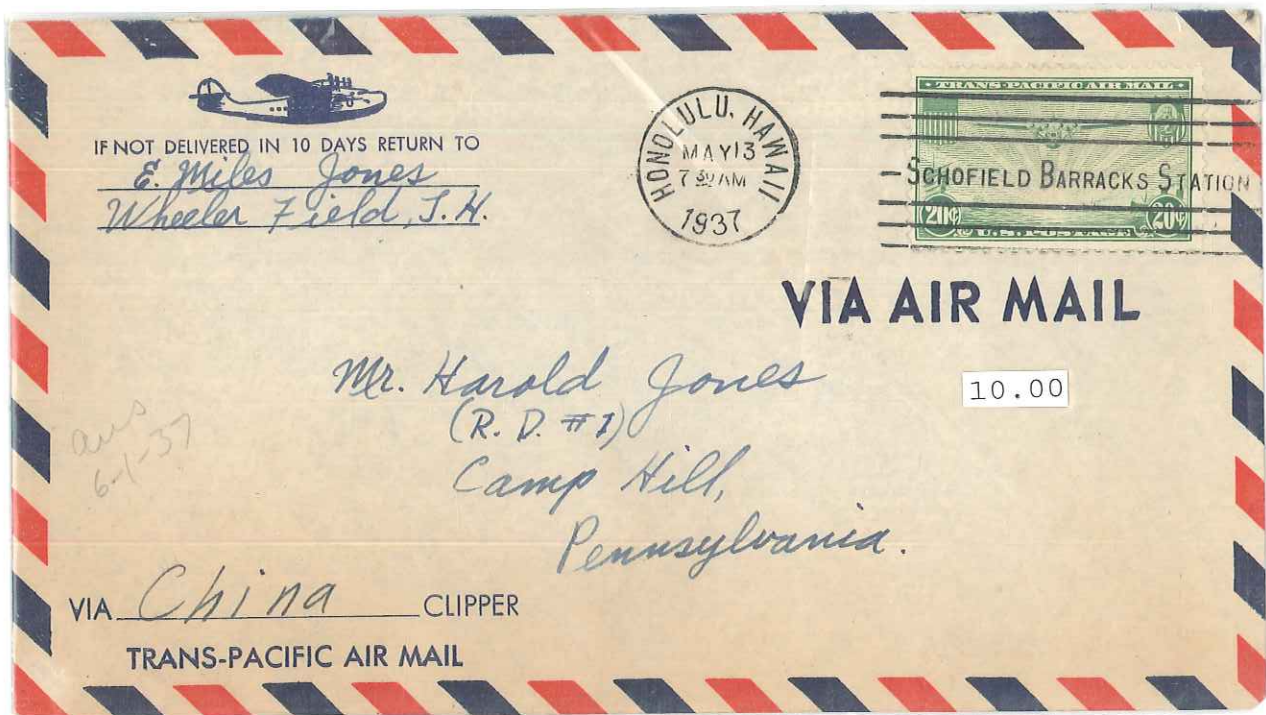 IF NOT DELIVERED IN 10 DAYS RETURN TO
E. Miles Jones
Wheeler Field, T.H.
HONOLULU, HAWAII
MAY 13
7 30 AM
1937
TRANS-PACIFIC AIR MAIL
SCHOFIELD BARRACKS STATION
20¢ 20¢
U.S. POSTAGE
VIA AIR MAIL
Mr. Harold Jones
10.00
(R. D. #1)
Camp Hill,
Pennsylvania.
ans
6-1-37
VIA China CLIPPER
TRANS-PACIFIC AIR MAIL